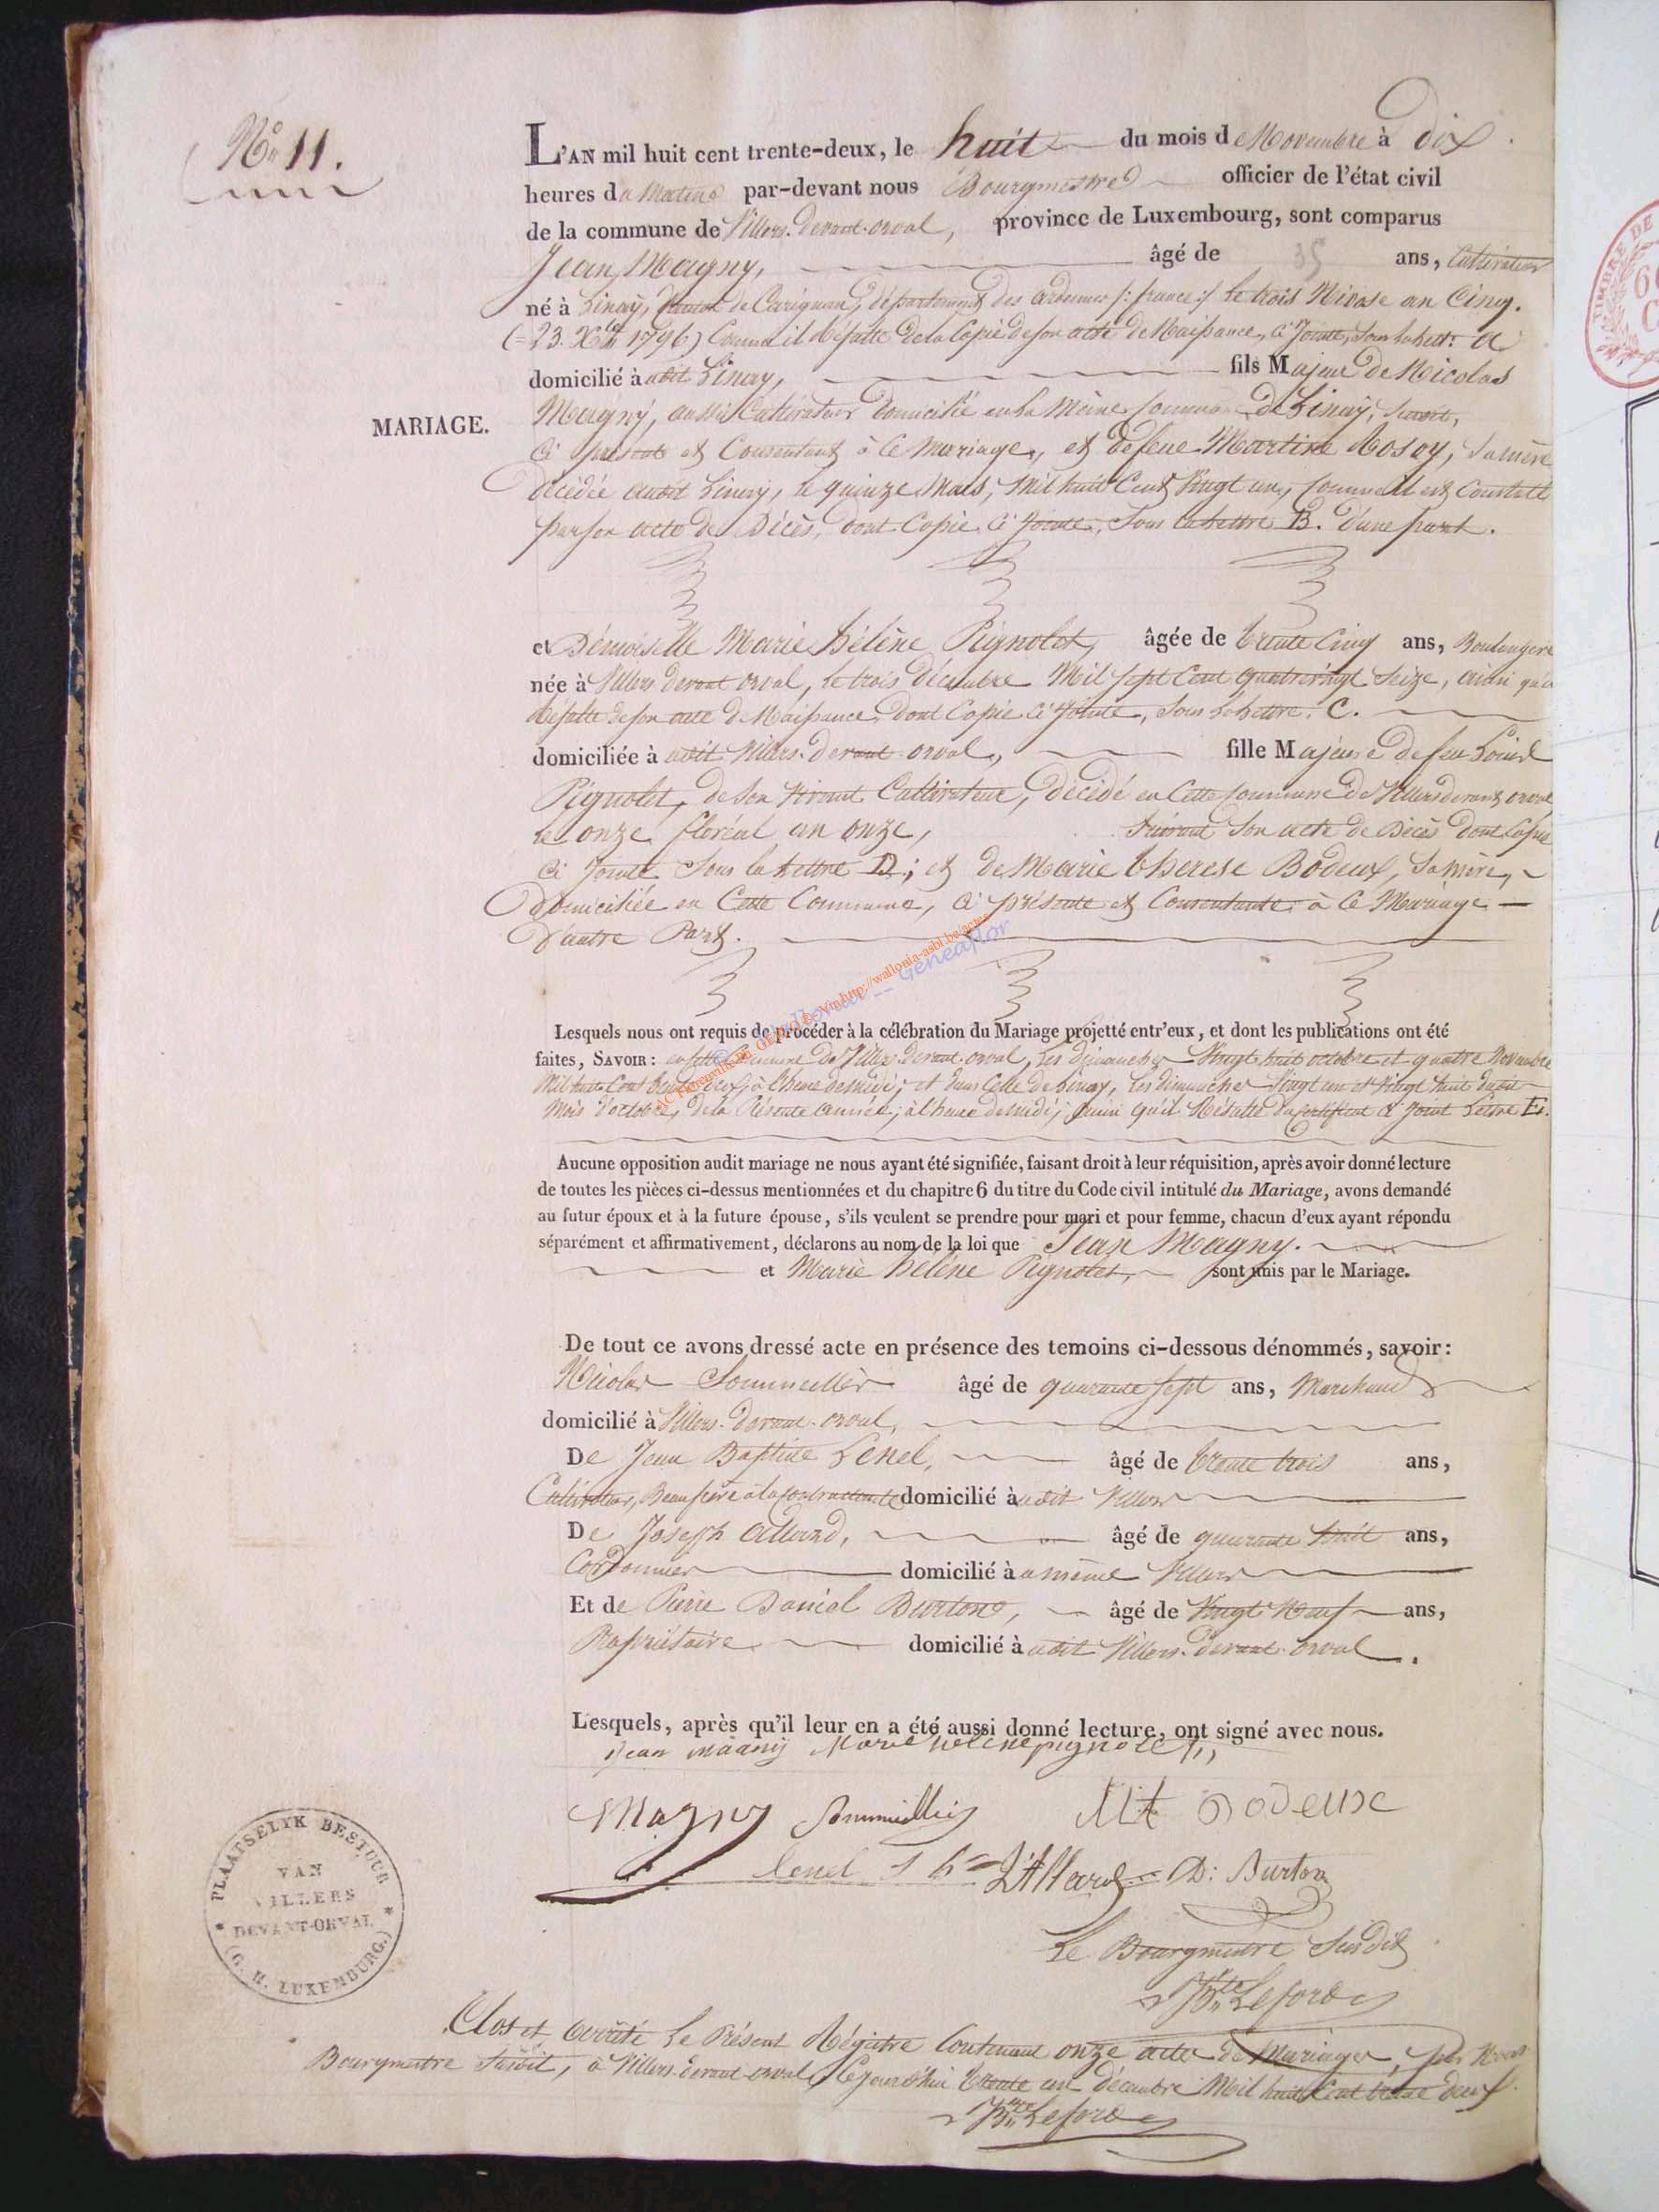 N° 11.
MARIAGE.
L'AN mil huit cent trente-deux, le huit du mois de Novembre à dix
heures du Matin par-devant nous Bourgmestre officier de l'état civil
de la commune de Villers-devant-orval, province de Luxembourg, sont comparus
Jean Magny, âgé de 35 ans, Cultivateur
né à Linay, Canton de Carignan, département des ardennes /: france :/ le trois Nivose an Cinq.
(= 23. Xbre 1796) Comme il Résulte de la Copie de son acte de Naissance, ci Jointe, sous la lettr. A
domicilié à udit Linay, fils Majeur de Nicolas
Magny, aussi Cultivateur domicilié en la Même Commune de Linay, susdit,
Ci présent et Consentant à ce Mariage, et de feue Martine Rosoy, sa mère
décédée audit Linay, le quinze Mars, Mil huit Cent Vingt un, Comme il est Constaté
par son acte de Décès, dont Copie ci Jointe, sous la lettre B. d'une part.
et Démoiselle Marie hélène Pignolet, âgée de trente Cinq ans, Boulangère
née à Villers devant orval, le trois décembre Mil sept Cent quatrevingt Seize, ainsi qu'il
Résulte de son acte de Naissance, dont Copie ci Jointe, sous la lettre. C.
domiciliée à udit Villers-devant-orval, fille Majeure de feu Louis
Pignolet, de son Vivant Cultivateur, décédé en Cette Commune de Villers devant orval
le onze floréal an onze, suivant son acte de Décès dont Copie
ci Jointe sous la lettre D; et de Marie therese Bodeux, sa mère,
domiciliée en Cette Commune, ci présente et Consentante à ce Mariage
d'autre Part.
Lesquels nous ont requis de procéder à la célébration du Mariage projetté entr'eux, et dont les publications ont été
faites, SAVOIR : en cette Commune de Villers-devant-orval, les dimanches Vingt huit octobre et quatre Novembre
Mil huit Cent trente deux, à l'heure de midi; et dans Celle de Linay, les dimanches Vingt un et Vingt huit dudit
Mois d'octobre, de la Présente année, à l'heure de midi, ainsi qu'il Résulte du certificat ci Joint Lettre E.
Aucune opposition audit mariage ne nous ayant été signifiée, faisant droit à leur réquisition, après avoir donné lecture
de toutes les pièces ci-dessus mentionnées et du chapitre 6 du titre du Code civil intitulé du Mariage, avons demandé
au futur époux et à la future épouse, s'ils veulent se prendre pour mari et pour femme, chacun d'eux ayant répondu
séparément et affirmativement, déclarons au nom de la loi que Jean Magny.
et Marie hélène Pignolet, sont unis par le Mariage.
De tout ce avons dressé acte en présence des temoins ci-dessous dénommés, savoir :
Nicolas Sommellier âgé de quarante sept ans, Marchand
domicilié à Villers-devant-orval,
De Jean Baptiste Lenel, âgé de trente trois ans,
Cultivateur, Beau frère à la contractante domicilié à udit Villers
De Joseph allard, âgé de quarante huit ans,
Cordonnier domicilié à u même Villers
Et de Pierre Daniel Burton, âgé de Vingt Neuf ans,
Propriétaire domicilié à udit Villers-devant-orval.
Lesquels, après qu'il leur en a été aussi donné lecture, ont signé avec nous.
jean magny Marie helene pignolet
Magny Sommellier Mt Bodeux
Lenel J Bte J Allard D: Burton
Le Bourgmestre Susdit
Clos et arrêté Le Présent Régistre Contenant onze actes de Mariages, par Nous
Bourgmestre susdit, à Villers-devant-orval, Cejourd'hui trente un décembre Mil huit Cent trente deux.
PLAATSELYK BESTUUR
VAN
VILLERS
* DEVANT-ORVAL *
(G. H. LUXEMBURG.)
TIMBRE DE